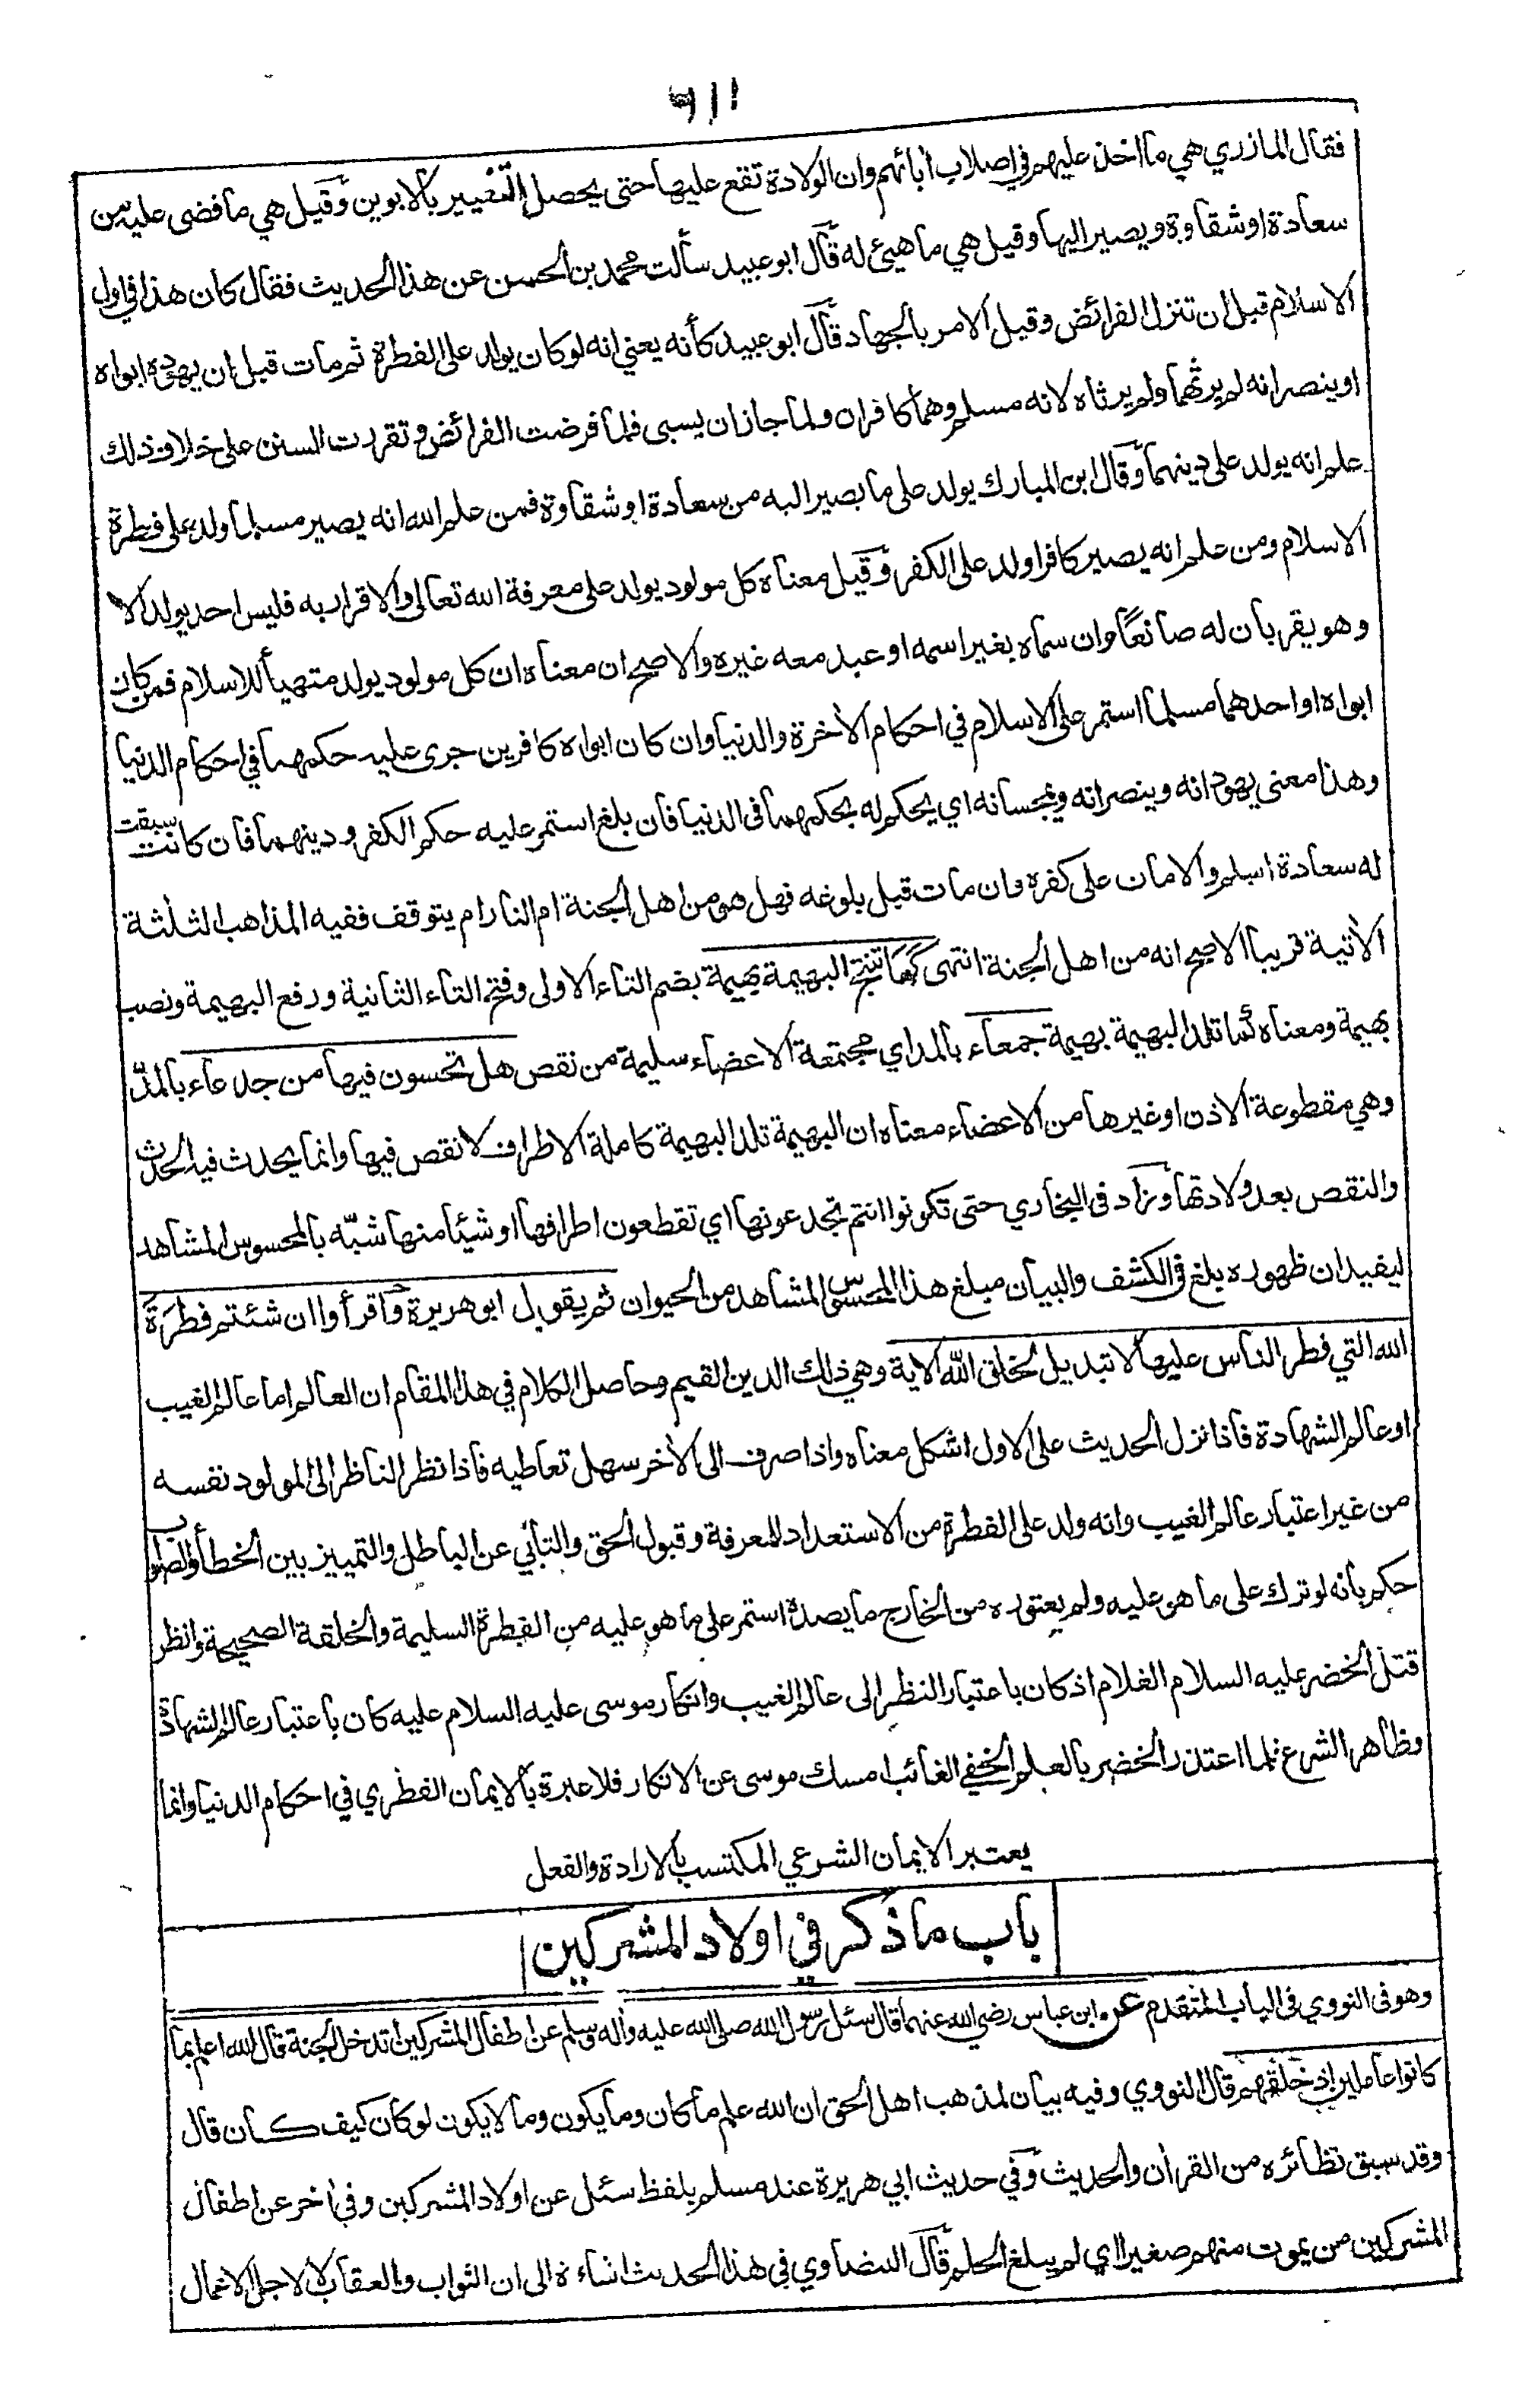 ٦١١
فقال المازري هي ما اخذ عليهم في اصلاب أبائهم وان الولادة تقع عليها حتى يحصل التغيير بالابوين وقيل هي ما قضى عليه من
سعادة او شقاوة ويصير اليها وقيل هي ما هيئ له قال ابو عبيد سألت محمد بن الحسن عن هذا الحديث فقال كان هذا في اول
الاسلام قبل ان تنزل الفرائض وقيل الامر بالجهاد قال ابو عبيد كأنه يعني انه لو كان يولد على الفطرة ثم مات قبل ان يهوده ابواه
او ينصرانه لم يرثهما ولم يرثاه لانه مسلم وهما كافران ولما جاز ان يسبى فلما فرضت الفرائض وتقررت السنن على خلاف ذلك
علم انه يولد على دينهما وقال ابن المبارك يولد على ما يصير اليه من سعادة او شقاوة فمن علم الله انه يصير مسلما ولد على فطرة
الاسلام ومن علم انه يصير كافرا ولد على الكفر وقيل معناه كل مولود يولد على معرفة الله تعالى والاقرار به فليس احد يولد الا
وهو يقر بأن له صانعًا وان سماه بغير اسمه او عبد معه غيره والاصح ان معناه ان كل مولود يولد متهيأ للاسلام فمن كان
ابواه او احدهما مسلما استمر على الاسلام في احكام الأخرة والدنيا وان كان ابواه كافرين جرى عليه حكمهما في احكام الدنيا
وهذا معنى يهودانه وينصرانه ويمجسانه اي يحكم له بحكمهما في الدنيا فأن بلغ استمر عليه حكم الكفر ودينهما فأن كانت سبقت
له سعادة اسلم والا مات على كفره وان مات قبل بلوغه فهل هو من اهل الجنة ام النار ام يتوقف ففيه المذاهب الثلثة
الأتية قريبا الاصح انه من اهل الجنة انتهى كما تنتج البهيمة بهيمة بضم التاء الاولى وفتح التاء الثانية ورفع البهيمة ونصب
بهيمة ومعناه كما تلد البهيمة بهيمة جمعاء بالمد اي مجتمعة الاعضاء سليمة من نقص هل تحسون فيها من جدعاء بالمدّ
وهي مقطوعة الاذن او غيرها من الاعضاء معناه ان البهيمة تلد البهيمة كاملة الاطراف لا نقص فيها وانما يحدث فيها الحدث
والنقص بعد ولادتها وزاد في البخاري حتى تكونوا انتم تجدعونها اي تقطعون اطرافها او شيئا منها شبّه بالمحسوس المشاهد
ليفيد ان ظهوره بلغ في الكشف والبيان مبلغ هذا المحسوس المشاهد من الحيوان ثم يقول ابو هريرة واقرأوا ان شئتم فطرة
الله التي فطر الناس عليها لا تبديل لخلق الله الأية وهي ذلك الدين القيم وحاصل الكلام في هذا المقام ان العالم اما عالم الغيب
او عالم الشهادة فأذا نزل الحديث على الاول اشكل معناه واذا صرف الى الأخر سهل تعاطيه فأذا نظر الناظر الى المولود نفسه
من غير اعتبار عالم الغيب وانه ولد على الفطرة من الاستعداد للمعرفة وقبول الحق والتأبي عن الباطل والتمييز بين الخطأ والصواب
حكم بأنه لو ترك على ما هو عليه ولم يعتوره من الخارج ما يصده استمر على ما هو عليه من الفطرة السليمة والخلقة الصحيحة وانظر
قتل الخضر عليه السلام الغلام اذ كان باعتبار النظر الى عالم الغيب وانكار موسى عليه السلام عليه كان باعتبار عالم الشهادة
وظاهر الشرع فلما اعتذر الخضر بالعلم الخفي الغائب امسك موسى عن الانكار فلا عبرة بالايمان الفطري في احكام الدنيا وانما
يعتبر الايمان الشرعي المكتسب بالارادة والفعل
باب ما ذكر في اولاد المشركين
وهو في النووي في الباب المتقدم عن ابن عباس رضي الله عنهما قال سئل رسول الله صلى الله عليه وأله وسلم عن اطفال المشركين تدخل الجنة قال الله اعلم بما
كانوا عاملين اذ خلقهم قال النووي وفيه بيان لمذهب اهل الحق ان الله علم ما كان وما يكون وما لا يكون لو كان كيف كان قال
وقد سبق نظائره من القرأن والحديث وفي حديث ابي هريرة عند مسلم بلفظ سئل عن اولاد المشركين وفي أخر عن اطفال
المشركين من يموت منهم صغيرا اي لم يبلغ الحلم قال البيضاوي في هذا الحديث اشاءة الى ان الثواب والعقاب لا لاجل الاعمال